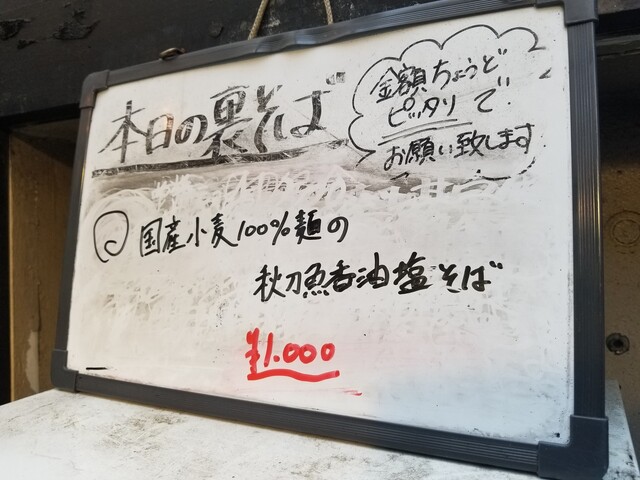 本日の裏そば
金額ちょうど
ピッタリで
お願い致します
国産小麦100%麺の
秋刀魚香油塩そば
¥1.000